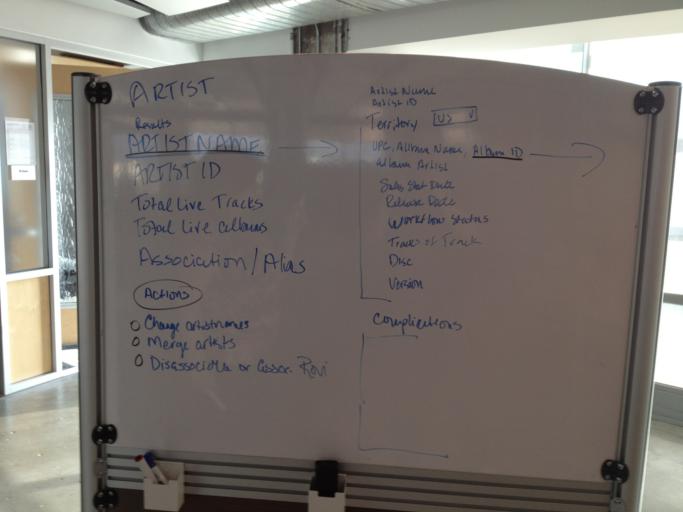 ARTIST
Results
ARTIST NAME
ARTIST ID
Total Live Tracks
Total Live Albums
Association/Alias
Actions
Change artist names
Merge artists
Disassociate or Rovi
Artist Name
Artist ID
Territory US
UPC, Album Name, Album ID
Album Artist
Sales Start Date
Release Date
Workflow Status
Track of Track
Disc
Version
Complications